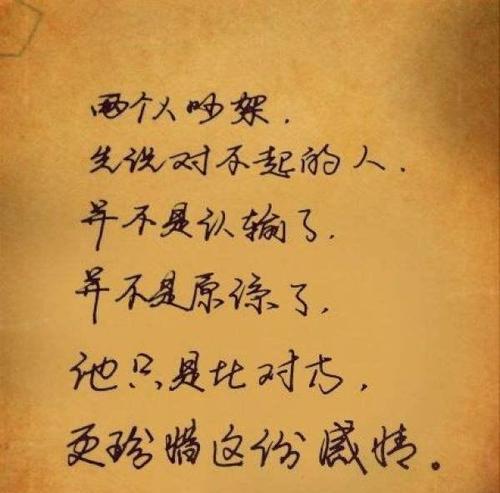 两个人吵架.
先说对不起的人.
并不是认输了.
并不是原谅了,
他只是比对方,
更珍惜这份感情。